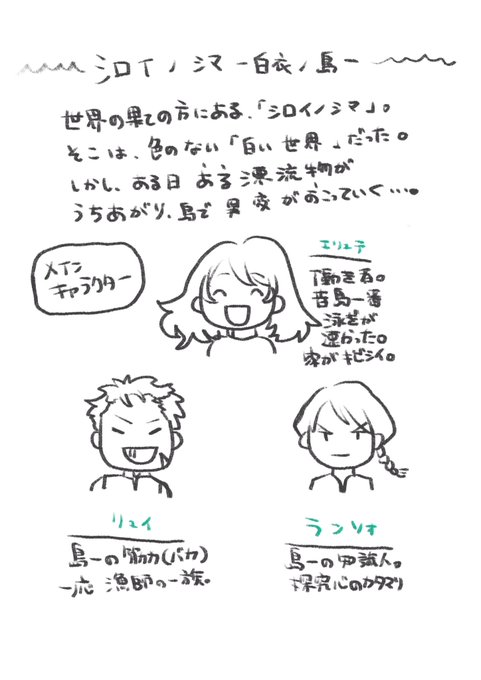 シロイノシマ ー白衣ノ島ー
世界の果ての方にある、「シロイノシマ」。
そこは、色のない「白い世界」だった。
しかし、ある日 ある漂流物が
うちあがり、島で異変がおこっていく…。
メイン
キャラクター
エリュテ
働き者。
昔島一番
泳ぎが
速かった。
家がキビシイ。
リュイ
島一の筋力(バカ)
一応 漁師の一族。
ランソオ
島一の知識人。
探究心のカタマリ